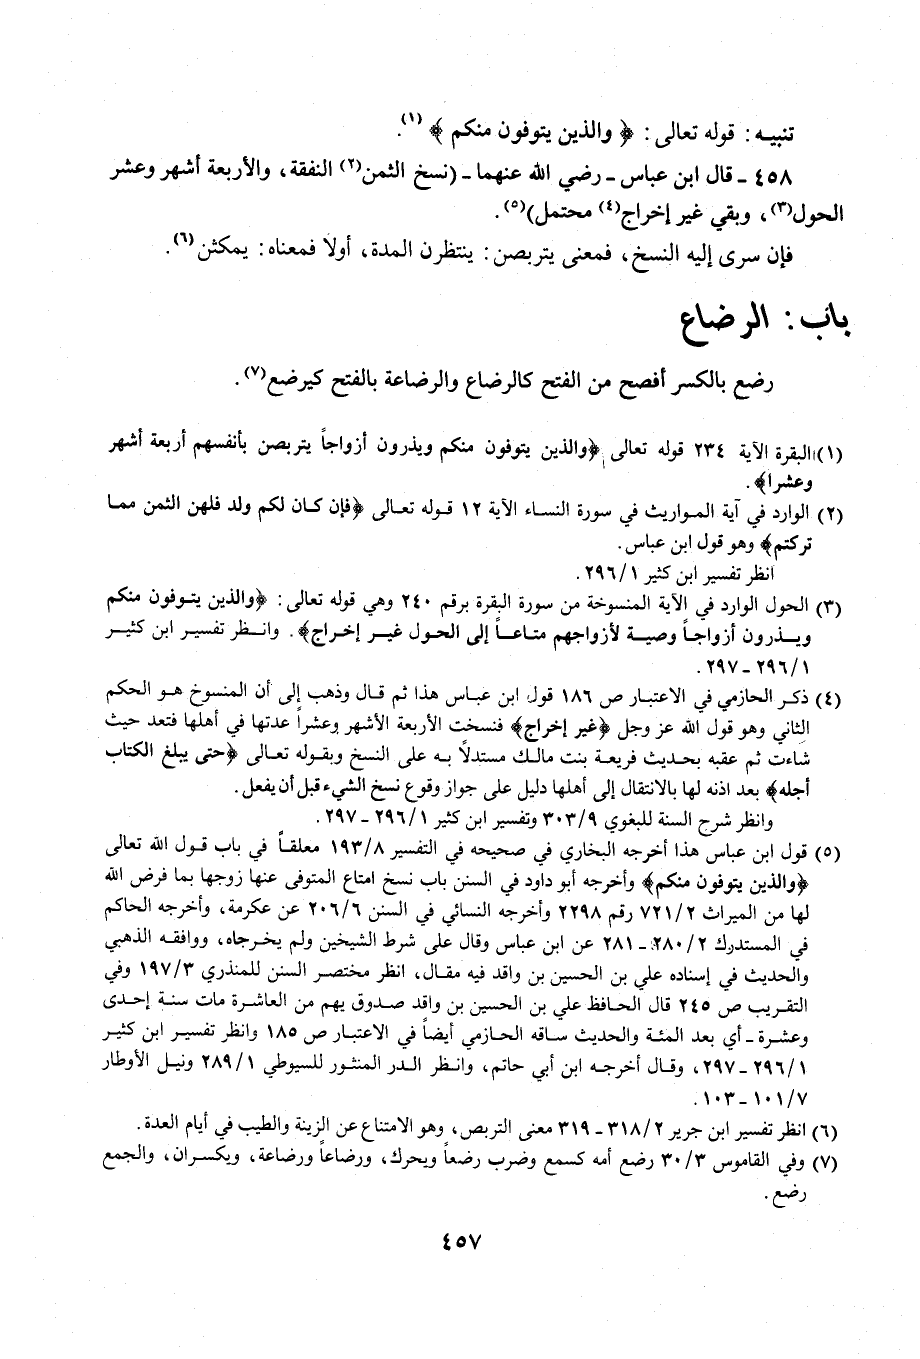 تنبيـه: قوله تعالى: ﴿ والذين يتوفون منكم ﴾ (١).
٤٥٨ ـ قال ابن عباس ـ رضي الله عنهما ـ (نسخ الثمن(٢) النفقة، والأربعة أشهر وعشر
الحول(٣)، وبقي غير إخراج(٤) محتمل)(٥).
فإن سرى إليه النسخ، فمعنى يتربصن: ينتظرن المدة، أولا فمعناه: يمكثن(٦).
باب: الرضاع
رضع بالكسر أفصح من الفتح كالرضاع والرضاعة بالفتح كيرضع(٧).
(١) البقرة الآية ٢٣٤ قوله تعالى ﴿والذين يتوفون منكم ويذرون أزواجاً يتربصن بأنفسهم أربعة أشهر
وعشرا﴾.
(٢) الوارد في آية المـواريث في سورة النسـاء الآية ١٢ قـوله تعـالى ﴿فإن كـان لكم ولد فلهن الثمن ممـا
تركتم﴾ وهو قول ابن عباس.
انظر تفسير ابن كثير ٢٩٦/١.
(٣) الحول الوارد في الآية المنسوخة من سورة البقرة برقم ٢٤٠ وهي قوله تعالى: ﴿والذين يتـوفون منكم
ويـذرون أزواجـاً وصيـة لأزواجهم متـاعـاً إلى الحـول غيـر إخـراج﴾. وانـظر تفسيـر ابن كثيـر
٢٩٦/١ ـ ٢٩٧.
(٤) ذكـر الحازمي في الاعتبـار ص ١٨٦ قول ابن عبـاس هذا ثم قـال وذهب إلى أن المنسوخ هـو الحكم
الثاني وهو قول الله عز وجل ﴿غير إخراج﴾ فنسخت الأربعة الأشهر وعشراً عدتها في أهلها فتعد حيث
شاءت ثم عقبه بحديث فريعـة بنت مالـك مستدلاً بـه على النسخ وبقـوله تعـالى ﴿حتى يبلغ الكتاب
أجله﴾ بعد اذنه لها بالانتقال إلى أهلها دليل على جواز وقوع نسخ الشيء قبل أن يفعل.
وانظر شرح السنة للبغوي ٣٠٣/٩ وتفسير ابن كثير ٢٩٦/١ ـ ٢٩٧.
(٥) قول ابن عباس هذا أخرجه البخاري في صحيحه في التفسير ١٩٣/٨ معلقـاً في باب قـول الله تعالى
﴿والذين يتوفون منكم﴾ وأخرجه أبو داود في السنن باب نسخ امتاع المتوفى عنها زوجها بما فرض الله
لها من الميراث ٧٢١/٢ رقم ٢٢٩٨ وأخرجه النسائي في السنن ٢٠٦/٦ عن عكرمة، وأخرجه الحاكم
في المستدرك ٢٨٠/٢ ـ ٢٨١ عن ابن عباس وقال على شرط الشيخين ولم يخـرجاه، ووافقـه الذهبي
والحديث في إسناده علي بن الحسين بن واقد فيه مقـال، انظر مختصـر السنن للمنذري ١٩٧/٣ وفي
التقريب ص ٢٤٥ قال الحـافظ علي بن الحسين بن واقد صـدوق يهم من العاشـرة مات سنـة إحـدى
وعشـرة ـ أي بعد المئـة والحديث سـاقه الحـازمي أيضاً في الاعتبـار ص ١٨٥ وانظر تفسيـر ابن كثير
٢٩٦/١ ـ ٢٩٧، وقـال أخرجـه ابن أبي حاتم، وانـظر الـدر المنثـور للسيوطي ٢٨٩/١ ونيـل الأوطار
١٠١/٧ ـ ١٠٣.
(٦) انظر تفسير ابن جرير ٣١٨/٢ ـ ٣١٩ معنى التربص، وهو الامتناع عن الزينة والطيب في أيام العدة.
(٧) وفي القاموس ٣٠/٣ رضع أمه كسمع وضرب رضعاً ويحرك، ورضاعاً ورضاعة، ويكسران، والجمع
رضع.
٤٥٧